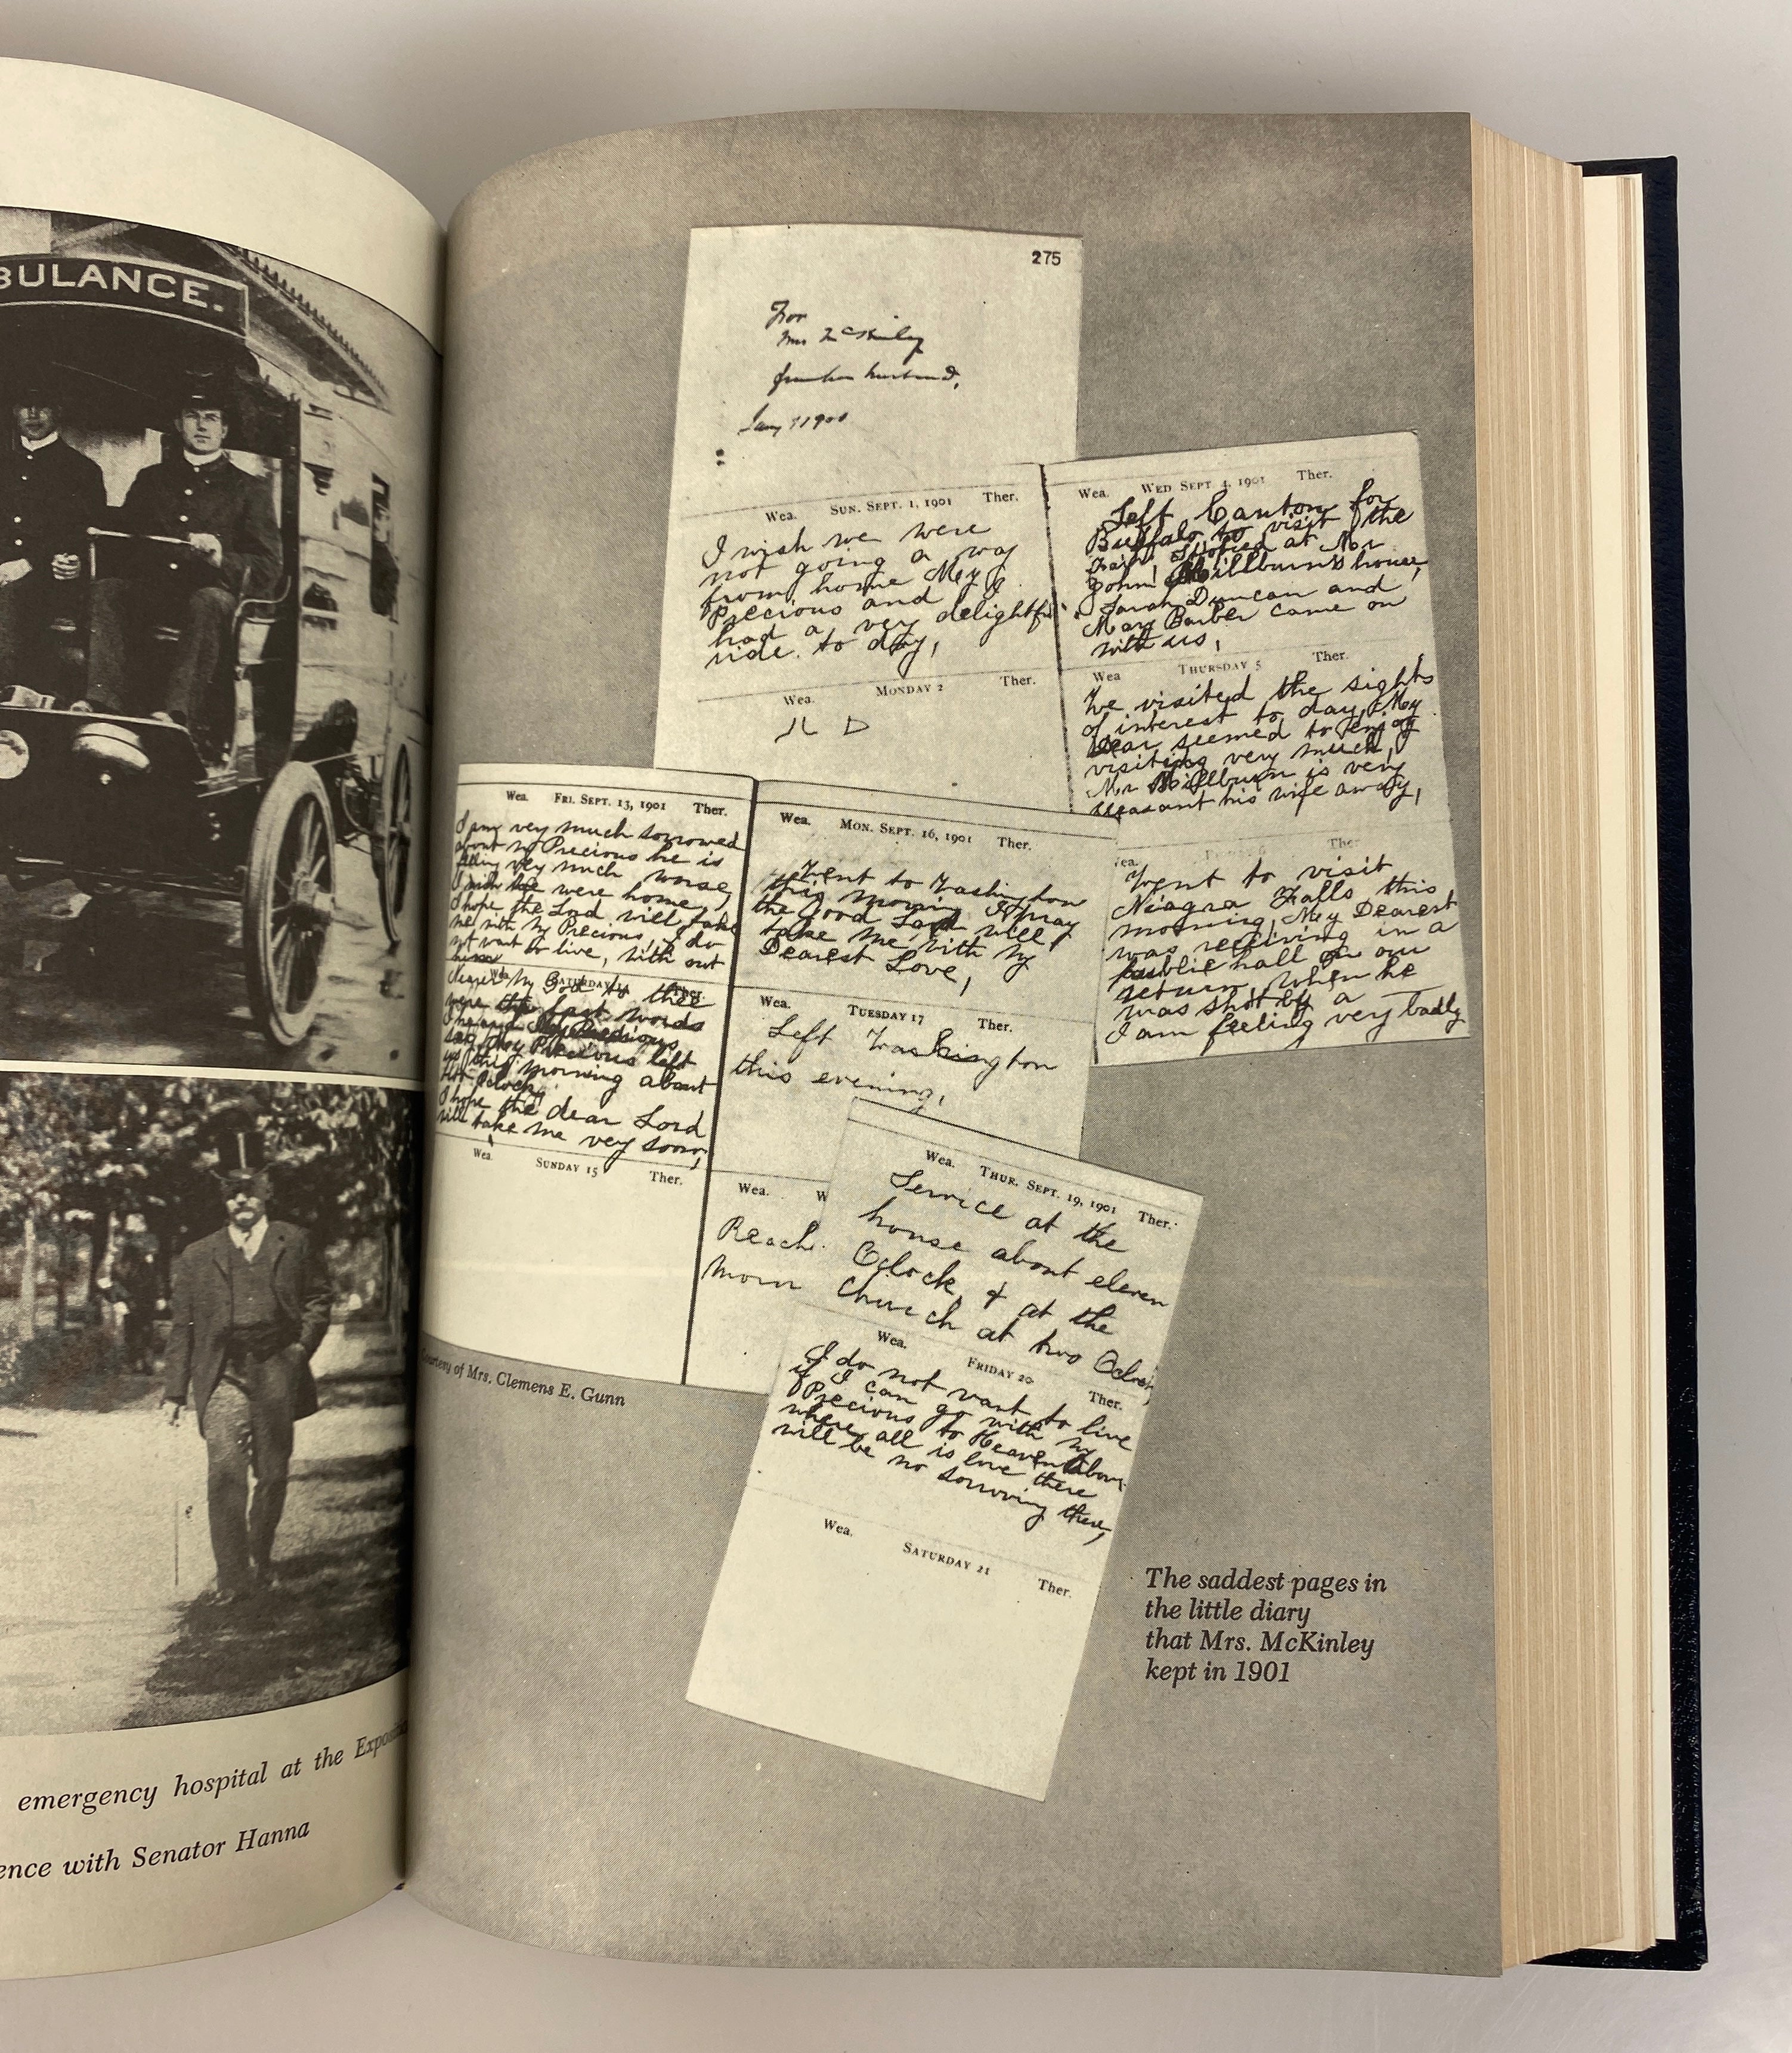 BULANCE.
emergency hospital at the Expositi
ence with Senator Hanna
275
For
Mrs McKinley
from her husband,
Jany 1 1901
Wea. SUN. SEPT. 1, 1901 Ther.
I wish we were
not going a way
from home My
Precious and I
had a very delightful
ride. to day,
Wea. MONDAY 2 Ther.
Wea. WED SEPT 4, 1901 Ther.
Left Canton for
Buffalo to visit the
Fair, Stopied at Mr
John Millburn's house,
Sarah Duncan and
Mary Barber came on
with us,
Wea THURSDAY 5 Ther.
We visited the sights
of interest to day, My
Dear seemed to enjoy
visiting very much,
Mr Millburn is very
pleasant his wife away,
ea. Ther
Went to visit
Niagra Falls this
morning, My Dearest
was receiving in a
public hall on our
return, when he
was shot by a
I am feeling very badly
Wea. FRI. SEPT. 13, 1901 Ther.
I am very much sorrowed
about my Precious he is
very much worse,
I wish we were home,
I hope the Lord will take
me with my Precious, I do
not want to live, with out
him
Wea. SATURDAY 14 Ther.
nearer My God to thee
were the last words
I heard My Precious
say, My Precious left
us this morning about
Oclock,
I hope the dear Lord
will take me very soon,
Wea. SUNDAY 15 Ther.
Wea. MON. SEPT. 16, 1901 Ther.
Went to Washington
this morning I pray
the good Lord will
take me with my
Dearest Love,
Wea. TUESDAY 17 Ther.
Left Washington
this evening,
Wea. W
Reach
morn
Wea. THUR. SEPT. 19, 1901 Ther.
Service at the
house about eleven
Oclock, & at the
Church at two Oclock,
Wea. FRIDAY 20 Ther.
I do not want to live
if I can go with my
Precious to Heaven above
where all is love there
will be no sorrowing there,
Wea. SATURDAY 21 Ther.
Courtesy of Mrs. Clemens E. Gunn
The saddest pages in
the little diary
that Mrs. McKinley
kept in 1901